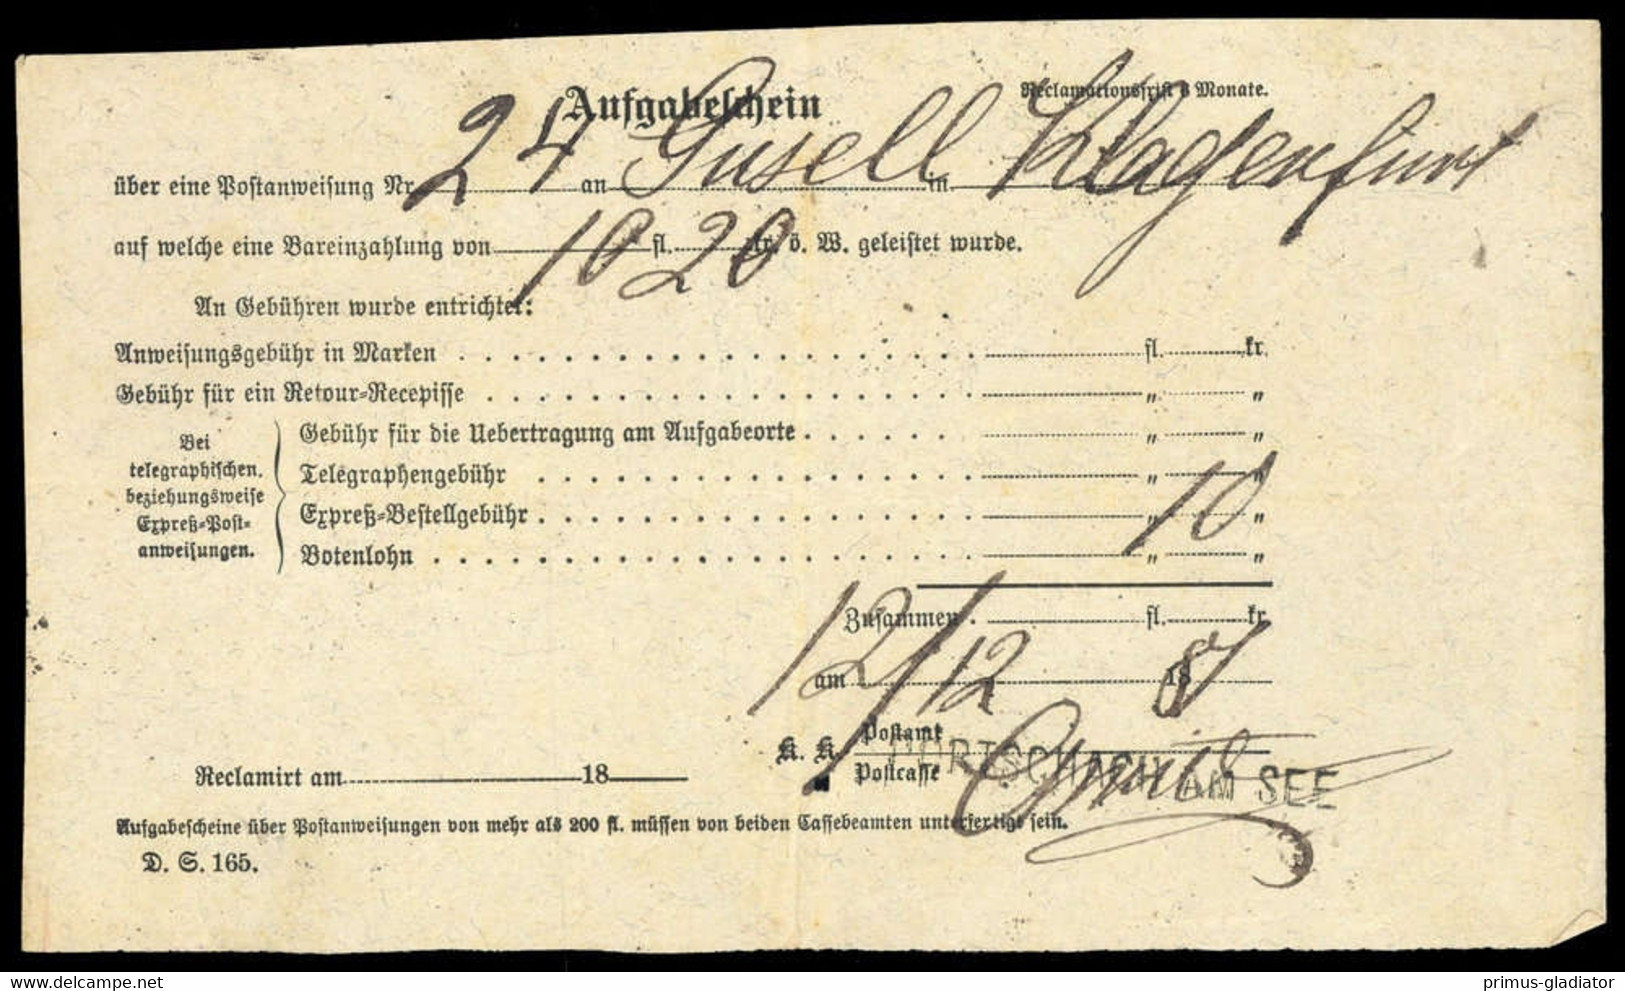 Aufgabeschein
Reclamationsfrist 6 Monate.
über eine Postanweisung Nr. 24 an Gusell in Klagenfurt
auf welche eine Bareinzahlung von 10 fl. 20 kr. ö. W. geleistet wurde.
An Gebühren wurde entrichtet:
Anweisungsgebühr in Marken . . . fl. kr.
Gebühr für ein Retour-Recepisse . . . " "
Bei telegraphischen, beziehungsweise Expreß-Post-anweisungen.
Gebühr für die Uebertragung am Aufgabeorte . . . " "
Telegraphengebühr . . . " "
Expreß-Bestellgebühr . . . " 10 "
Botenlohn . . . " "
Zusammen . fl. kr.
am 12/12 1887
K. K. Postamt
Postcasse
PÖRTSCHACH AM SEE
Reclamirt am 18
Aufgabescheine über Postanweisungen von mehr als 200 fl. müssen von beiden Cassebeamten unterfertigt sein.
D. S. 165.
delcampe.net
primus-gladiator